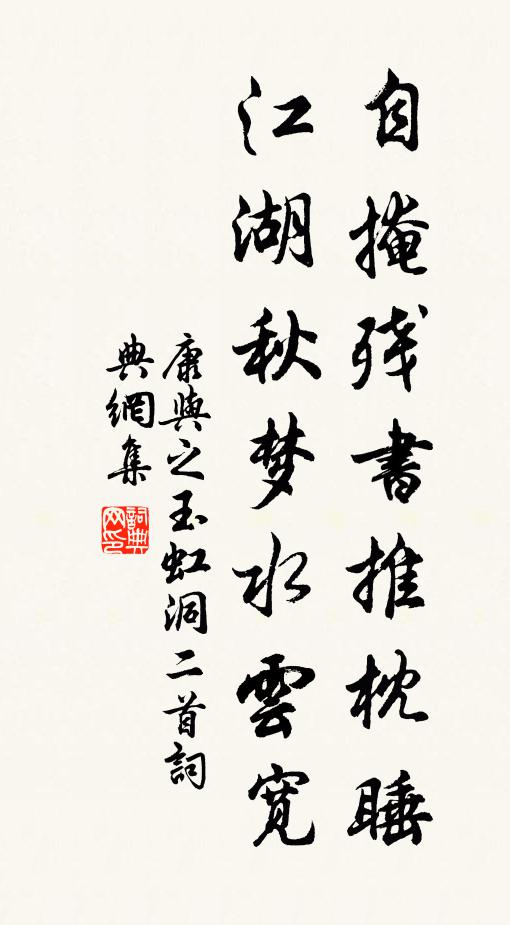 自掩残書推枕睡
江湖秋梦水雲寛
康與之玉虹洞二首詞
典網集
詞典
网印